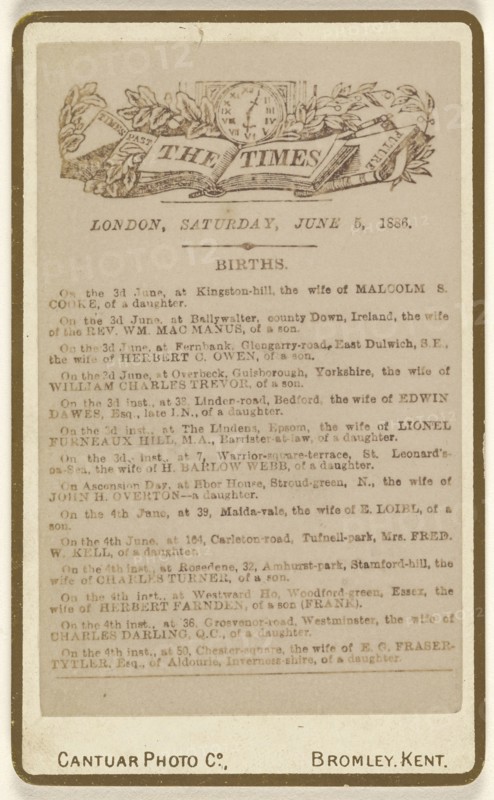 TIMES PAST
THE TIMES
FUTURE
LONDON, SATURDAY, JUNE 5, 1886.
BIRTHS.
On the 3d June, at Kingston-hill, the wife of MALCOLM S.
COOKE, of a daughter.
On the 3d June, at Ballywalter, county Down, Ireland, the wife
of the REV. WM. MAC MANUS, of a son.
On the 3d June, at Fernbank, Glengarry-road, East Dulwich, S.E.,
the wife of HERBERT C. OWEN, of a son.
On the 3d June, at Overbeck, Guisborough, Yorkshire, the wife of
WILLIAM CHARLES TREVOR, of a son.
On the 3d inst., at 38, Linden-road, Bedford, the wife of EDWIN
DAWES, Esq., late I.N., of a daughter.
On the 3d inst., at The Lindens, Epsom, the wife of LIONEL
FURNEAUX HILL, M.A., Barrister-at-law, of a daughter.
On the 3d inst., at 7, Warrior-square-terrace, St. Leonard's-
on-Sea, the wife of H. BARLOW WEBB, of a daughter.
On Ascension Day, at Ebor House, Stroud-green, N., the wife of
JOHN H. OVERTON—a daughter.
On the 4th June, at 39, Maida-vale, the wife of E. LOIBL, of a
son.
On the 4th June, at 164, Carleton-road, Tufnell-park, Mrs. FRED.
W. KELL, of a daughter.
On the 4th inst., at Rosedene, 32, Amhurst-park, Stamford-hill, the
wife of CHARLES TURNER, of a son.
On the 4th inst., at Westward Ho, Woodford-green, Essex, the
wife of HERBERT FARNDEN, of a son (FRANK).
On the 4th inst., at 36, Grosvenor-road, Westminster, the wife of
CHARLES DARLING, Q.C., of a daughter.
On the 4th inst., at 50, Chester-square, the wife of E. G. FRASER-
TYTLER, Esq., of Aldourie, Inverness-shire, of a daughter.
CANTUAR PHOTO Co., BROMLEY. KENT.